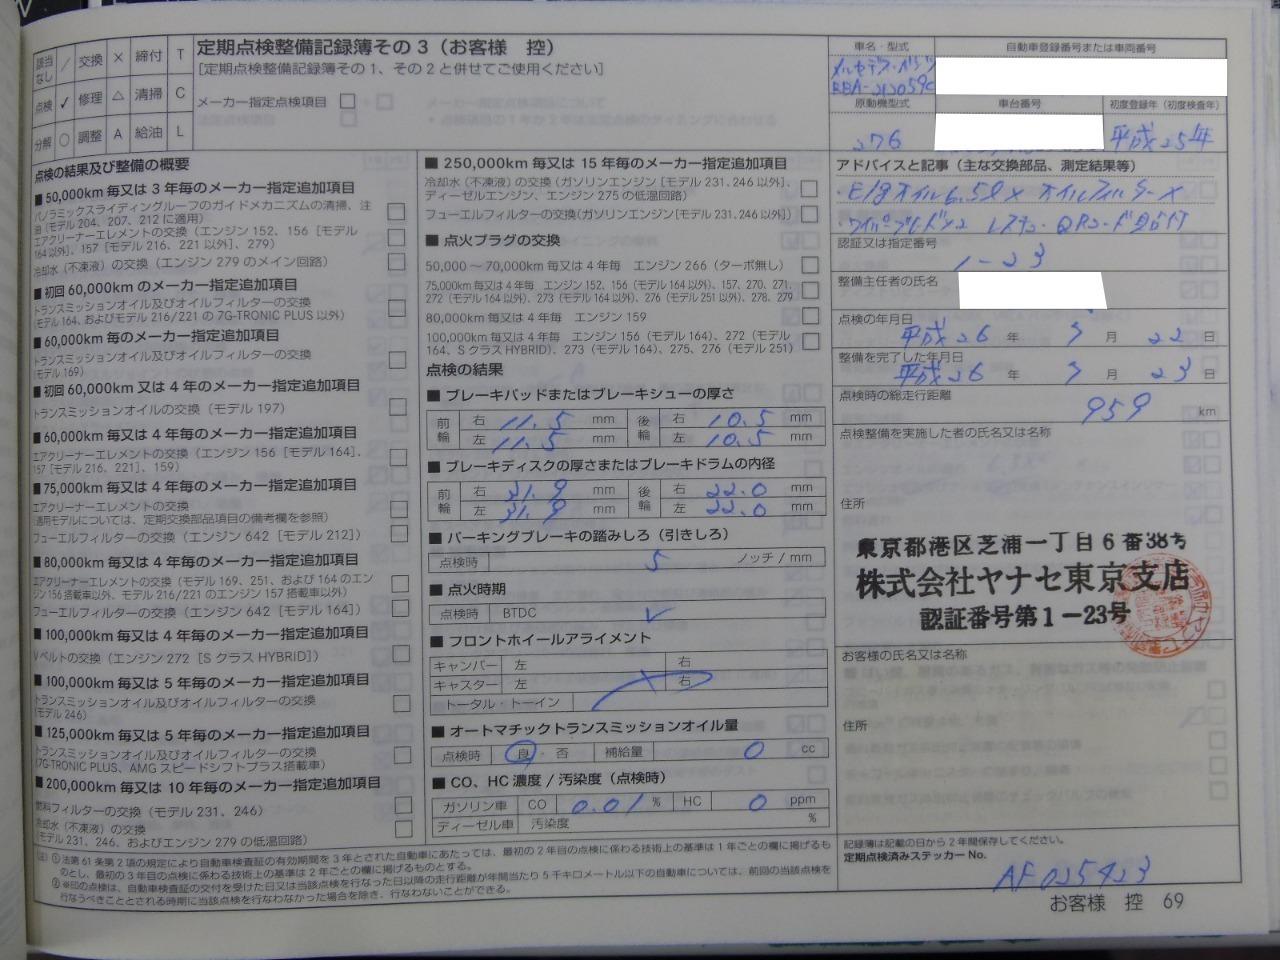 該当なし ／ 交換 × 締付 T
点検 ✓ 修理 △ 清掃 C
分解 ○ 調整 A 給油 L
定期点検整備記録簿その3（お客様　控）
［定期点検整備記録簿その1、その2と併せてご使用ください］
メーカー指定点検項目 □
点検の結果及び整備の概要
■50,000km 毎又は 3 年毎のメーカー指定追加項目
パノラミックスライディングルーフのガイドメカニズムの清掃、注油（モデル 204、207、212 に適用）
エアクリーナーエレメントの交換（エンジン 152、156［モデル 164以外］、157［モデル 216、221 以外］、279）
冷却水（不凍液）の交換（エンジン 279 のメイン回路）
■初回 60,000km のメーカー指定追加項目
トランスミッションオイル及びオイルフィルターの交換
（モデル 164、およびモデル 216/221 の 7G-TRONIC PLUS 以外）
■60,000km 毎のメーカー指定追加項目
トランスミッションオイル及びオイルフィルターの交換
（モデル 169）
■初回 60,000km 又は 4 年毎のメーカー指定追加項目
トランスミッションオイルの交換（モデル 197）
■60,000km 毎又は 4 年毎のメーカー指定追加項目
エアクリーナーエレメントの交換（エンジン 156［モデル 164］、157［モデル 216、221］、159）
■75,000km 毎又は 4 年毎のメーカー指定追加項目
エアクリーナーエレメントの交換
（適用モデルについては、定期交換部品項目の備考欄を参照）
フューエルフィルターの交換（エンジン 642［モデル 212］）
■80,000km 毎又は 4 年毎のメーカー指定追加項目
エアクリーナーエレメントの交換（モデル 169、251、および 164 のエンジン 156 搭載車以外、モデル 216/221 のエンジン 157 搭載車以外）
フューエルフィルターの交換（エンジン 642［モデル 164］）
■100,000km 毎又は 4 年毎のメーカー指定追加項目
Vベルトの交換（エンジン 272［S クラス HYBRID］）
■100,000km 毎又は 5 年毎のメーカー指定追加項目
トランスミッションオイル及びオイルフィルターの交換
（モデル 246）
■125,000km 毎又は 5 年毎のメーカー指定追加項目
トランスミッションオイル及びオイルフィルターの交換
（7G-TRONIC PLUS、AMG スピードシフトプラス搭載車）
■200,000km 毎又は 10 年毎のメーカー指定追加項目
燃料フィルターの交換（モデル 231、246）
冷却水（不凍液）の交換
（モデル 231、246、およびエンジン 279 の低温回路）
■250,000km 毎又は 15 年毎のメーカー指定追加項目
冷却水（不凍液）の交換（ガソリンエンジン［モデル 231、246 以外］、ディーゼルエンジン、エンジン 275 の低温回路）
フューエルフィルターの交換（ガソリンエンジン［モデル 231、246 以外］）
■点火プラグの交換
50,000 ～ 70,000km 毎又は 4 年毎　エンジン 266（ターボ無し）
75,000km 毎又は 4 年毎　エンジン 152、156（モデル 164 以外）、157、270、271、272（モデル 164 以外）、273（モデル 164 以外）、276（モデル 251 以外）、278、279
80,000km 毎又は 4 年毎　エンジン 159
100,000km 毎又は 4 年毎　エンジン 156（モデル 164）、272（モデル 164、S クラス HYBRID）、273（モデル 164）、275、276（モデル 251）
点検の結果
■ブレーキパッドまたはブレーキシューの厚さ
前輪 右 11.5 mm 後輪 右 10.5 mm
左 11.5 mm 左 10.5 mm
■ブレーキディスクの厚さまたはブレーキドラムの内径
前輪 右 31.9 mm 後輪 右 22.0 mm
左 31.9 mm 左 22.0 mm
■パーキングブレーキの踏みしろ（引きしろ）
点検時 5 ノッチ / mm
■点火時期
点検時 BTDC ✓
■フロントホイールアライメント
キャンバー 左 右
キャスター 左 右
トータル・トーイン
■オートマチックトランスミッションオイル量
点検時 良・否 補給量 0 cc
■CO、HC 濃度 / 汚染度（点検時）
ガソリン車 CO 0.01 % HC 0 ppm
ディーゼル車 汚染度 %
車名・型式
メルセデス・ベンツ
RBA-212059C
自動車登録番号または車両番号
原動機型式
276
車台番号
初度登録年（初度検査年）
平成25年
アドバイスと記事（主な交換部品、測定結果等）
・E/gオイル6.5ℓ× オイルフィルター×
QRコード貼付
認証又は指定番号
1-23
整備主任者の氏名
点検の年月日
平成26 年 3 月 22 日
整備を完了した年月日
平成26 年 3 月 23 日
点検時の総走行距離
959 km
点検整備を実施した者の氏名又は名称
住所
東京都港区芝浦一丁目6番38号
株式会社ヤナセ東京支店
認証番号第1-23号
お客様の氏名又は名称
住所
記録簿は記載の日から 2 年間保存してください。
定期点検済みステッカー No.
AF025423
（注）① 法第 61 条第 2 項の規定により自動車検査証の有効期間を 3 年とされた自動車にあたっては、最初の 2 年目の点検に係わる技術上の基準は 1 年ごとの欄に掲げるものとし、最初の 3 年目の点検に係わる技術上の基準は 2 年ごとの欄に掲げるものとする。
② ※印の点検は、自動車検査証の交付を受けた日又は当該点検を行なった日以降の走行距離が年間当たり 5 千キロメートル以下の自動車については、前回の当該点検を行なうべきこととされる時期に当該点検を行なわなかった場合を除き、行なわないことができる。
お客様　控　69